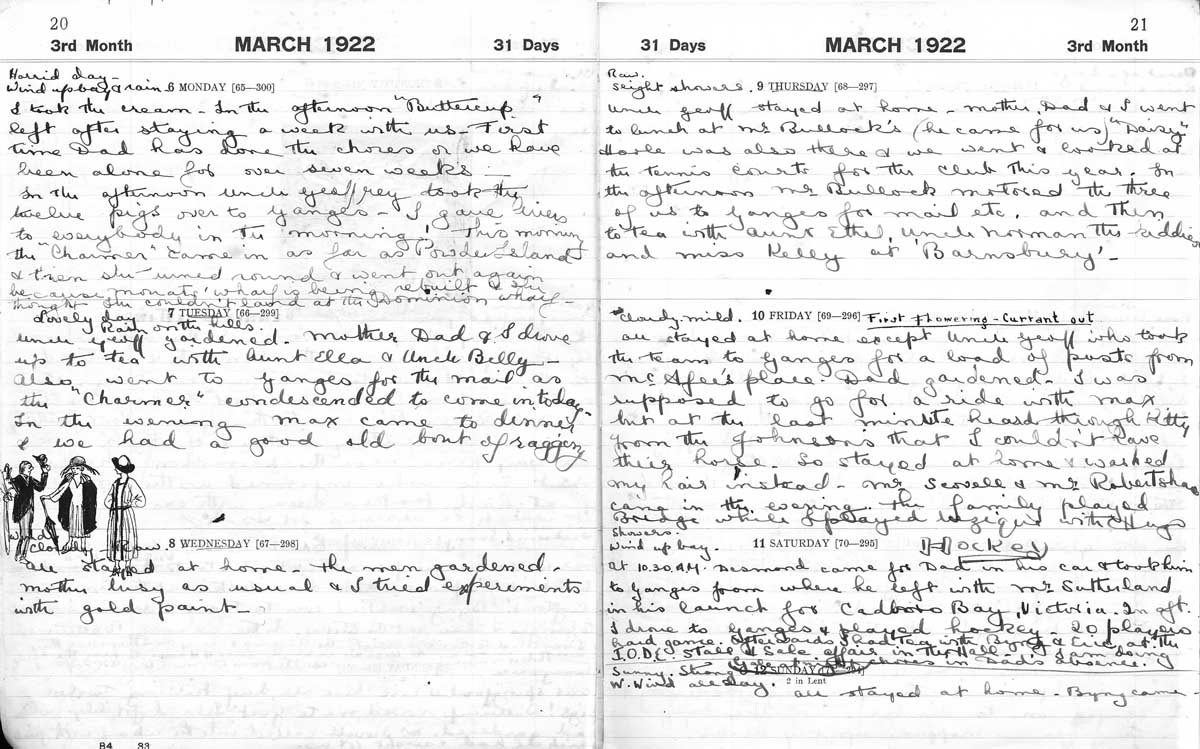 20
3rd Month MARCH 1922 31 Days
Horrid day -
Wind up bay & rain. 6 MONDAY [65—300]
I took the cream - In the afternoon "Buttercup"
left after staying a week with us - First
time Dad has done the chores or we have
been alone for over seven weeks -
In the afternoon Uncle Geoffrey took the
twelve pigs over to Ganges - I gave
to "everybody in the morning! This morning
the "Charmer" came in as far as Powder Island
& then she turned round & went out again
because Monats' wharf is being rebuilt & she
thought she couldn't land at the Dominion wharf -
Lovely day 7 TUESDAY [66—299]
Rain on the hills.
Uncle Geoff gardened. Mother Dad & I drove
up to tea with Aunt Ella & Uncle Billy -
Also went to Ganges for the mail as
the "Charmer" condescended to come in today -
In the evening Max came to dinner
& we had a good old bout of ragging
Wind
Cloudy - Raw. 8 WEDNESDAY [67—298]
All stayed at home - the men gardened.
Mother busy as usual & I tried experiments
with gold paint -
84 83
21
31 Days MARCH 1922 3rd Month
Raw.
Slight showers. 9 THURSDAY [68—297]
Uncle Geoff stayed at home - Mother, Dad & I went
to lunch at Mr Bullock's (he came for us) "Daisy"
was also there & we went & looked at
the tennis courts for the club this year. In
the afternoon Mr Bullock motored the three
of us to Ganges for mail etc. and then
to tea with Aunt Ethel, Uncle Norman the kiddies
and Miss Kelly at 'Barnsbury' -
Cloudy. mild. 10 FRIDAY [69—296] First Flowering - Currant out.
All stayed at home except Uncle Geoff who took
the team to Ganges for a load of posts from
Mc Afee's place. Dad gardened - I was
supposed to go for a ride with Max
but at the last minute heard through Kitty
from the Johnsons that I couldn't have
their horse. So stayed at home & washed
my hair instead - Mr Scovell & Mr Robertshaw
came in the evening. The family played
Bridge while I played Bezique with Hugo
Showers.
Wind up bay. 11 SATURDAY [70—295] Hockey
At 10.30 A.M. Desmond came for Dad in his car & took him
to Ganges from where he left with Mr Sutherland
in his launch for Cadboro Bay, Victoria. In aft.
I drove to Ganges & played hockey - 20 players
Good game. Afterwards I had tea with Byng & at the
I.O.D.E. Stall & Sale affair in the Hall - I am doing
chores in Dad's absence.
Sunny. Strong 12 SUNDAY
W. Wind all day. 2 in Lent
All stayed at home - Byng came